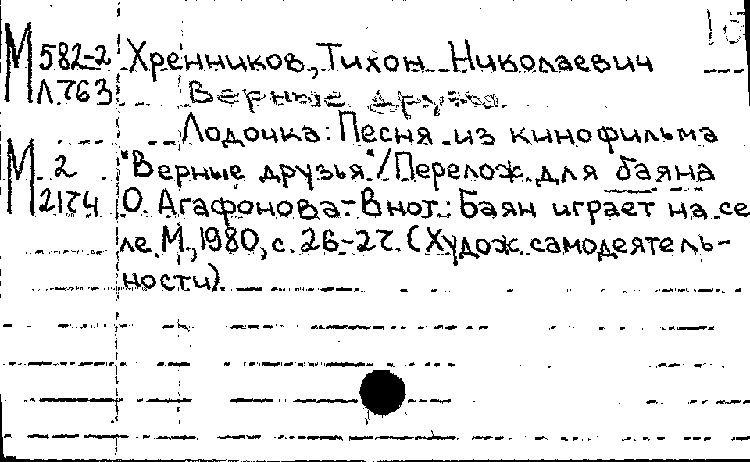 М 582-2 Хренников, Тихон Николаевич
Л763 Верные друзья.
Лодочка: Песня из кинофильма
М 2 "Верные друзья"/Перелож. для баяна
2174 О. Агафонова.- В нот.: Баян играет на се
ле. М., 1980, с. 26-27. (Худож. самодеятель-
ности)